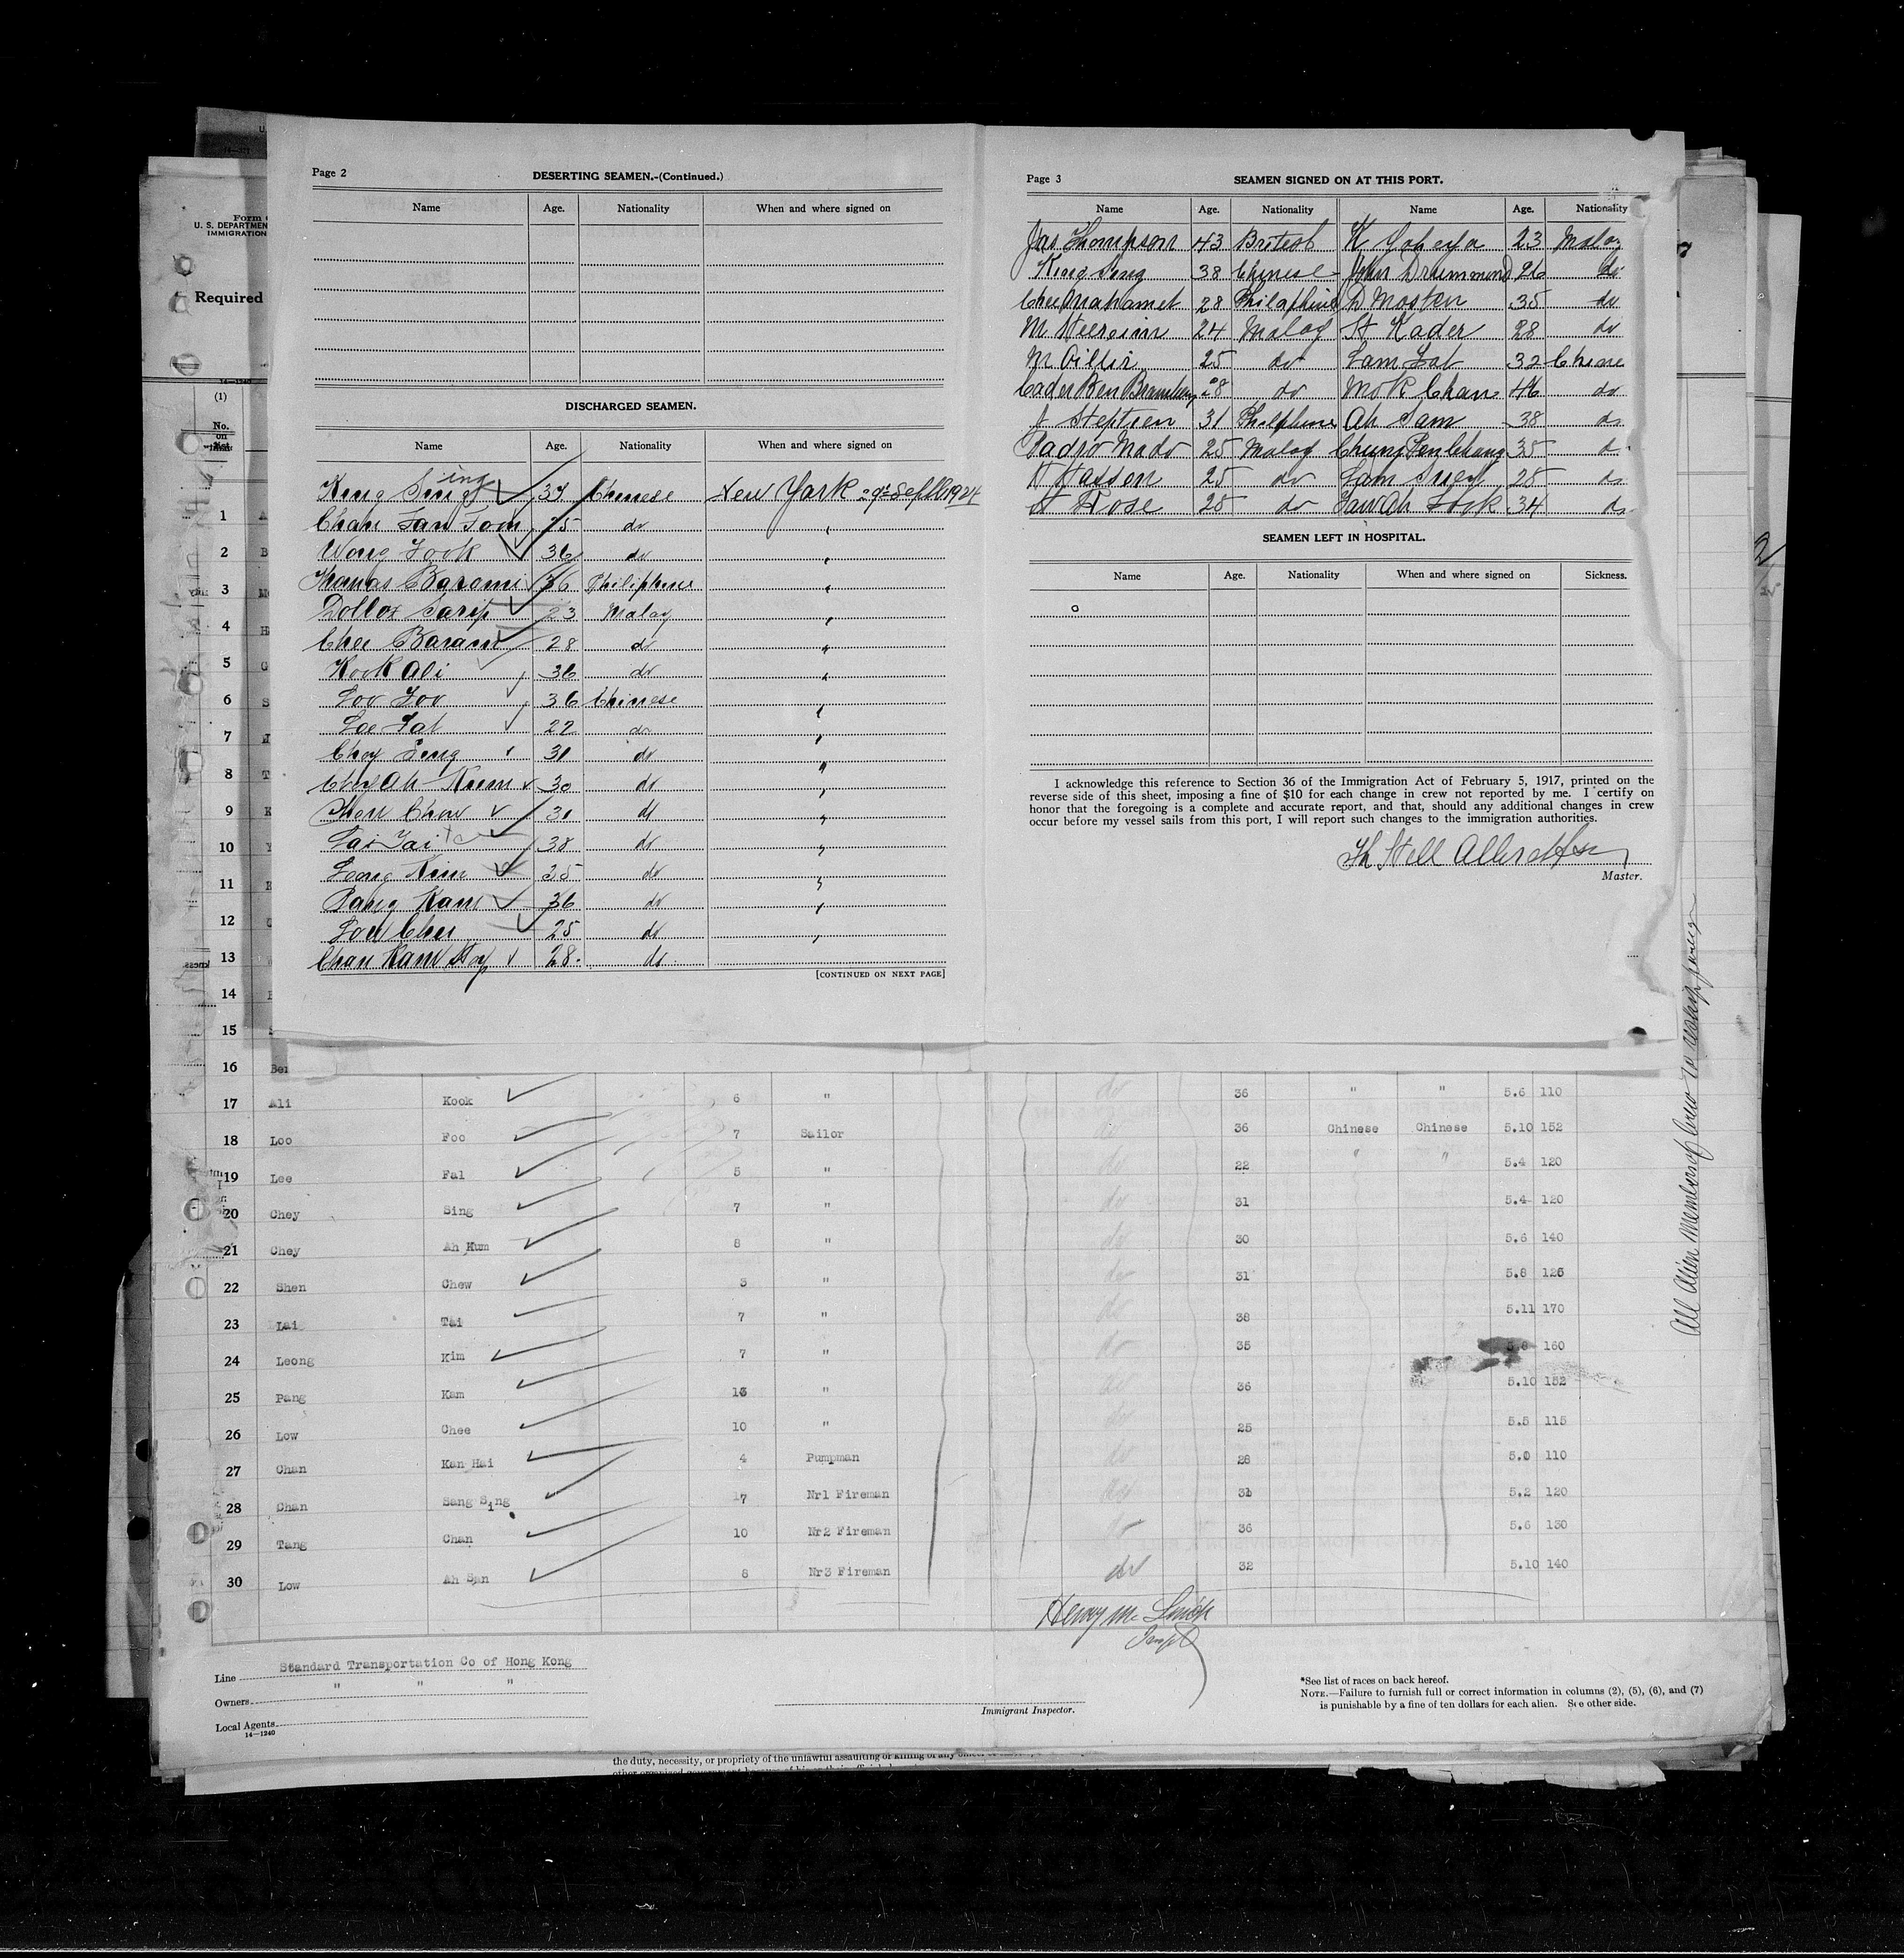 Page 2
DESERTING SEAMEN.-(Continued.)
Name Age. Nationality When and where signed on
DISCHARGED SEAMEN.
Name Age. Nationality When and where signed on
King Sing Chinese New York Sept 1924
Chan Fan Tom 25 do "
Wong Fook 36 do "
Thomas 36 Philiphine "
Dollos Sarip 23 Malay "
Cher 28 do "
Kook Ali 36 do "
Loo Foo 36 Chinese "
Lee Fat 22 do "
Choy Sing 31 do "
Choy Ah Kum 30 do "
Shen Chew 31 do "
Lai Tai 38 do "
Leong Kim 35 do "
Pang Kam 36 do "
Low Chee 25 do "
Chan Kam Hoy 28 do
[CONTINUED ON NEXT PAGE]
Page 3
SEAMEN SIGNED ON AT THIS PORT.
Name Age. Nationality Name Age. Nationality
Jas Thompson 43 British K Yaheya 23 Malay
King Sing 38 Chinese John Drummond 26 do
Chee Mahamet 28 Philaphine D Mosten 35 do
M 24 Malay St Kader 28 do
M 25 do Lam Fat 32 Chinese
Cader Ben 28 do Mok Chan 46 do
J Steptien 31 Ah Sam 38 do
Padjo Mado 25 Malay Chung 35 do
H Hassen 25 do Lam Suey 28 do
28 do Law Ah Sook 34 do
SEAMEN LEFT IN HOSPITAL.
Name Age. Nationality When and where signed on Sickness.
I acknowledge this reference to Section 36 of the Immigration Act of February 5, 1917, printed on the
reverse side of this sheet, imposing a fine of $10 for each change in crew not reported by me. I certify on
honor that the foregoing is a complete and accurate report, and that, should any additional changes in crew
occur before my vessel sails from this port, I will report such changes to the immigration authorities.
Master.
Form
U. S. DEPARTMEN
IMMIGRATION
Required
14-1240
(1)
No.
on
list
1
2
3
4
5
6
7
8
9
10
11
12
13
14
15
16 Ben
17 Ali Kook 6 " do 36 " " 5.6 110
18 Loo Foo 7 Sailor do 36 Chinese Chinese 5.10 152
19 Lee Fal 5 " do 22 " " 5.4 120
20 Chey Sing 7 " do 31 5.4 120
21 Chey Ah Kum 8 " do 30 5.6 140
22 Shen Chew 3 " do 31 5.8 126
23 Lai Tai 7 " do 38 5.11 170
24 Leong Kim 7 " do 35 5.8 160
25 Pang Kam 13 " do 36 5.10 152
26 Low Chee 10 " do 25 5.5 115
27 Chan Kan Hai 4 Pumpman do 28 110
28 Chan Sang Sing 17 Nr1 Fireman do 31 5.2 120
29 Tang Chan 10 Nr2 Fireman do 36 5.6 130
30 Low Ah San 8 Nr3 Fireman do 32 5.10 140
Henry M. Smith
Inspt
Line Standard Transportation Co of Hong Kong
Owners " " "
Local Agents
14-1240
Immigrant Inspector.
*See list of races on back hereof.
NOTE.—Failure to furnish full or correct information in columns (2), (5), (6), and (7)
is punishable by a fine of ten dollars for each alien. See other side.
All Alien members of Crew
the duty, necessity, or propriety of the unlawful assaulting or killing of any